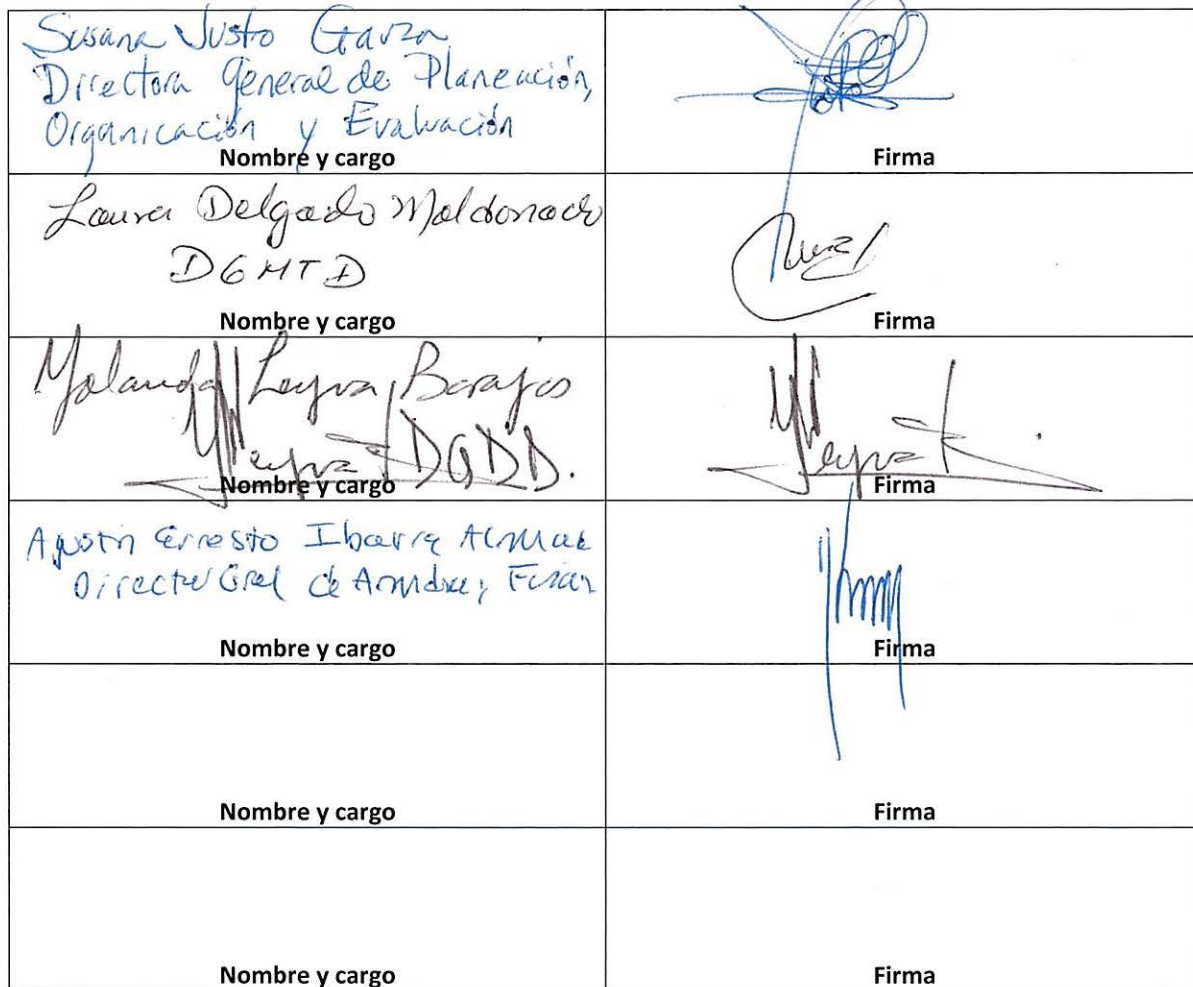 Susana Justo Garza
Directora General de Planeación,
Organización y Evaluación
Nombre y cargo
Firma
Laura Delgado Maldonado
DGMTD
Nombre y cargo
Firma
Yolanda Leyva Barajas
Leyva DGDD.
Nombre y cargo
Leyva
Firma
Agustin Ernesto Ibarra
Director Gral de
Nombre y cargo
Firma
Nombre y cargo
Firma
Nombre y cargo
Firma